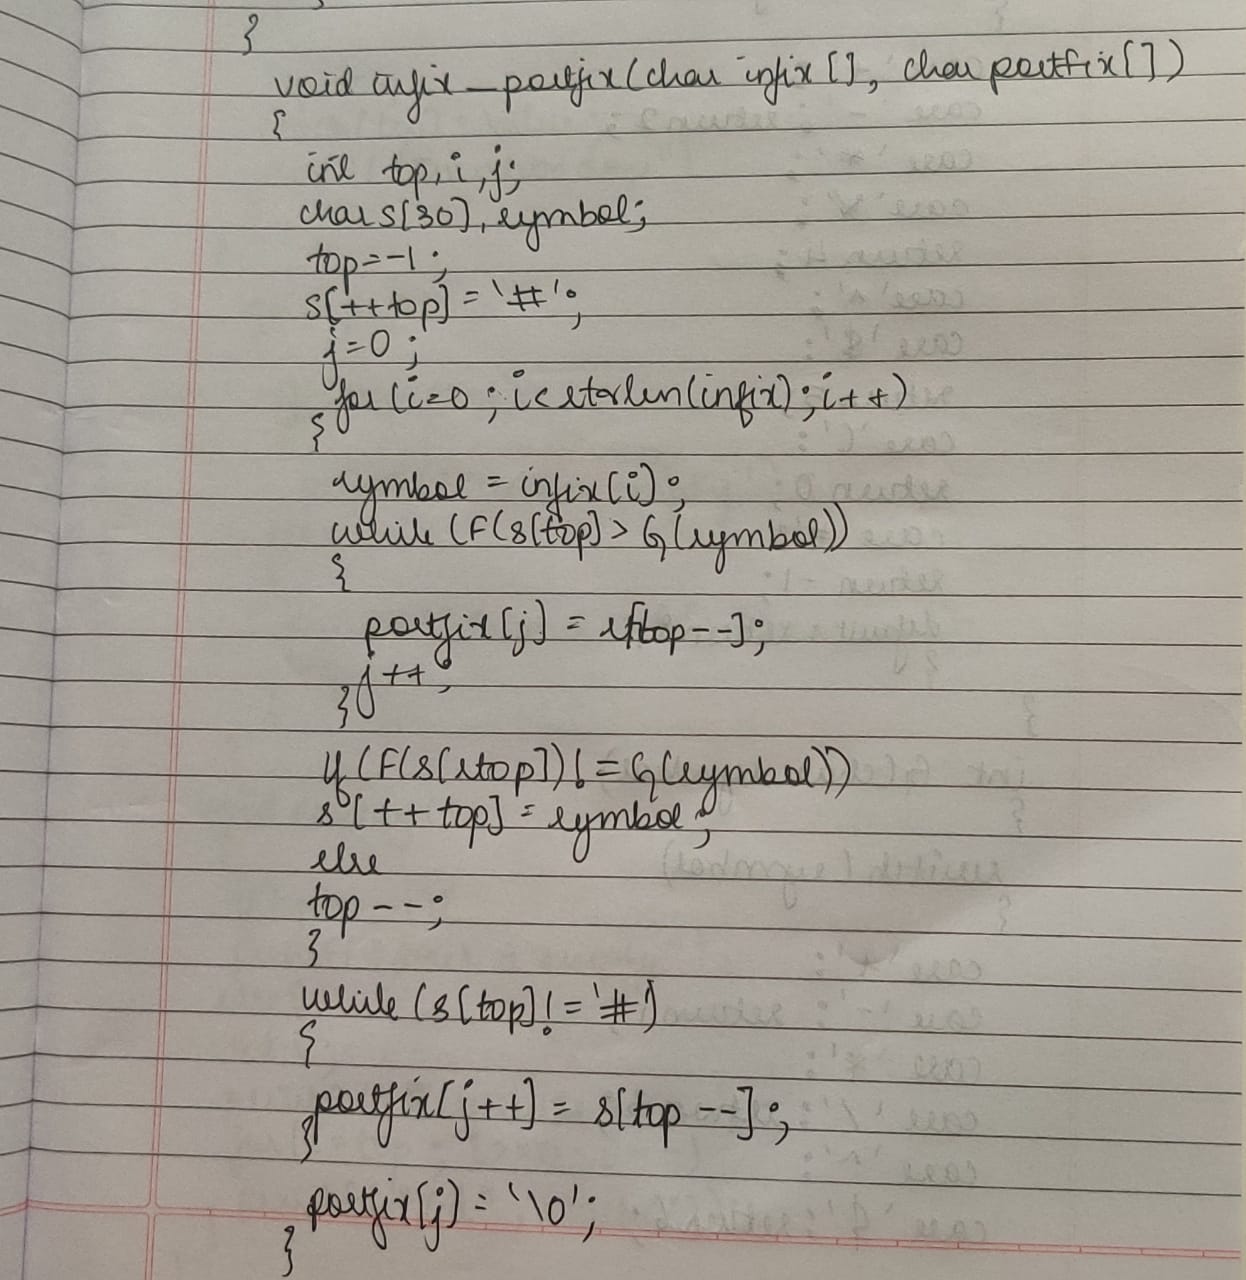 }
void infix_postfix(char infix[], char postfix[])
{
int top, i, j;
char s[30], symbol;
top=-1;
s[++top]='#';
j=0;
for (i=0; i<strlen(infix); i++)
{
symbol = infix[i];
while (F(s[top]> G(symbol))
{
postfix[j] = s[top--];
j++;
}
if (F(s[stop])!=G(symbol))
s[++top]=symbol;
else
top--;
}
while (s[top]!='#')
{
postfix[j++] = s[top--];
}
postfix[j] = '\0';
}